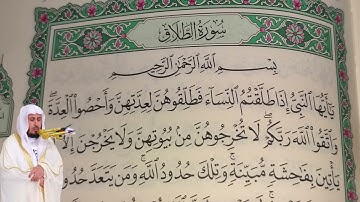 سُورَةُ الطَّلَاقِ
بِسْمِ اللَّهِ الرَّحْمَٰنِ الرَّحِيمِ
يَٰٓأَيُّهَا النَّبِيُّ إِذَا طَلَّقْتُمُ النِّسَآءَ فَطَلِّقُوهُنَّ لِعِدَّتِهِنَّ وَأَحْصُوا الْعِدَّةَ
وَاتَّقُوا اللَّهَ رَبَّكُمْ لَا تُخْرِجُوهُنَّ مِنۢ بُيُوتِهِنَّ وَلَا يَخْرُجْنَ إِلَّا
يَأْتِينَ بِفَٰحِشَةٍ مُّبَيِّنَةٍ وَتِلْكَ حُدُودُ اللَّهِ وَمَن يَتَعَدَّ حُدُو